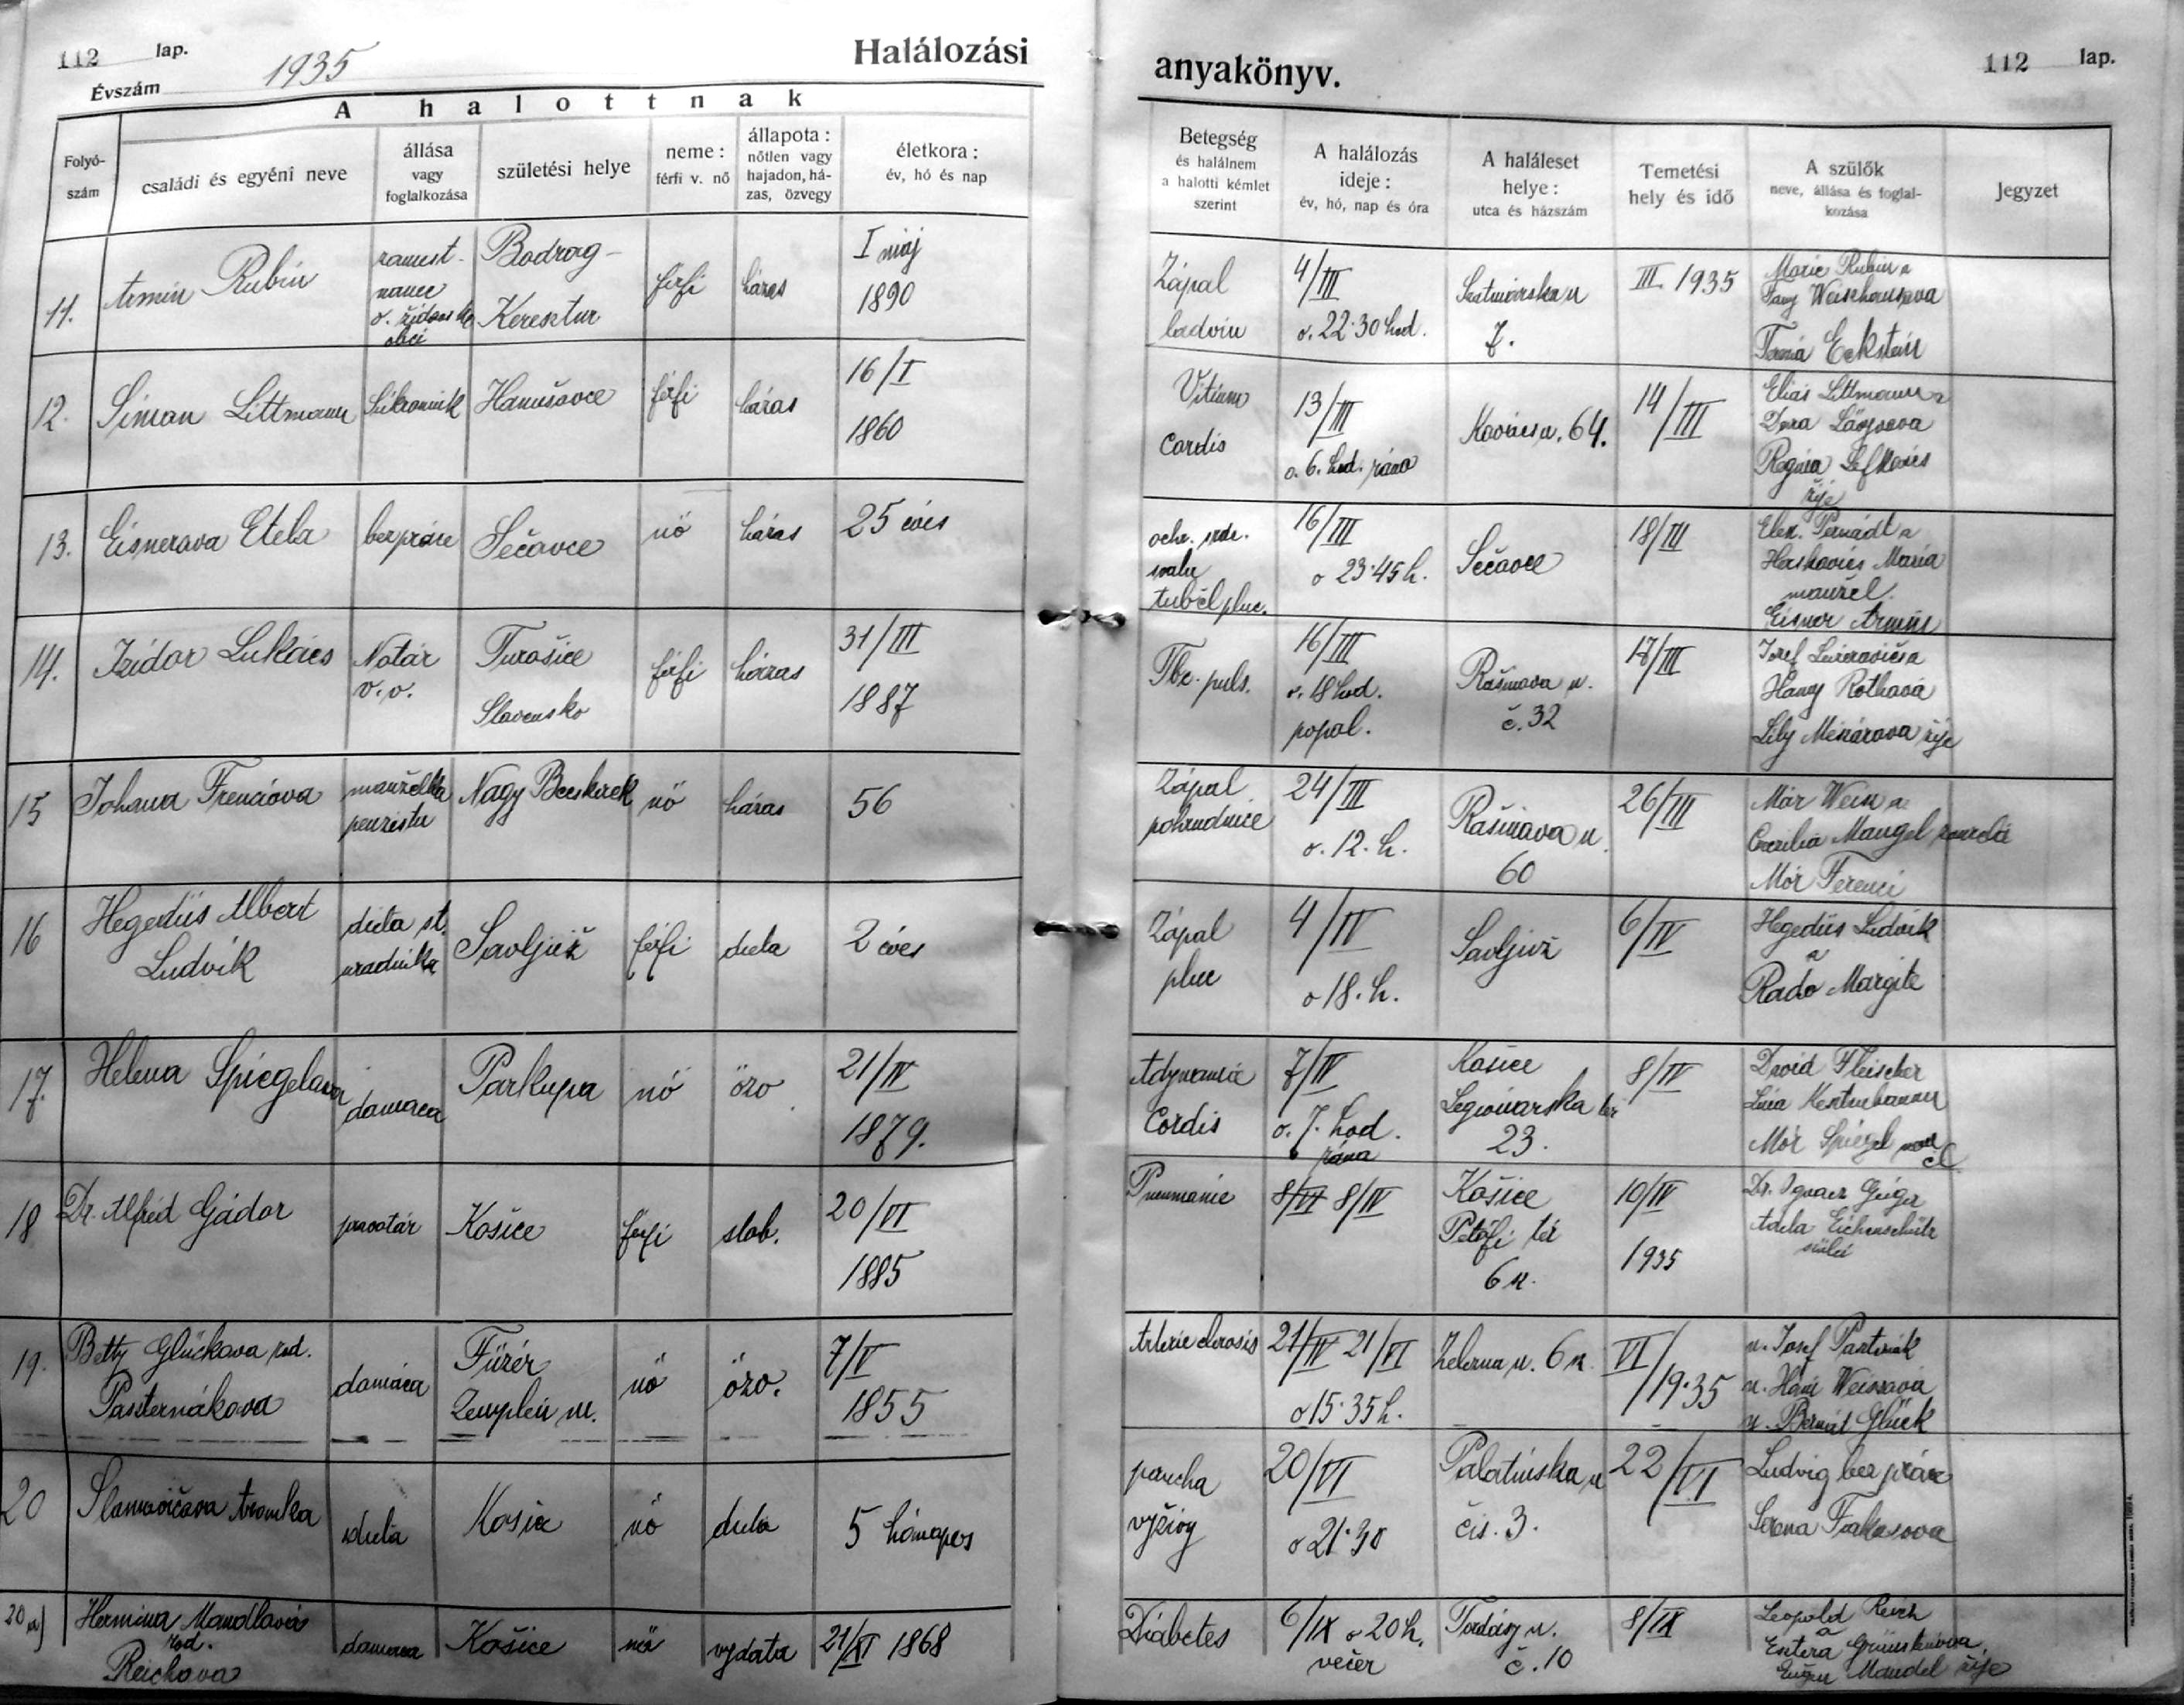 112 lap.
Évszám 1935
Halálozási
anyakönyv.
112 lap.
A halottnak
Folyó-
szám
családi és egyéni neve
állása
vagy
foglalkozása
születési helye
neme:
férfi v. nő
állapota:
nőtlen vagy
hajadon, há-
zas, özvegy
életkora:
év, hó és nap
Betegség
és halálnem
a halotti kémlet
szerint
A halálozás
ideje:
év, hó, nap és óra
A haláleset
helye:
utca és házszám
Temetési
hely és idő
A szülők
neve, állása és foglal-
kozása
Jegyzet
11.
Armin Rubin
zamest-
nanec
o. židovske
obci
Bodrog-
Keresztur
férfi
házas
I máj
1890
Zápal
ladvin
4/III
o. 22·30 hod.
Szatmárska u
7.
III. 1935
Eckstein
12.
Simon Littmann
Súkromník
Hanušovce
férfi
házas
16/I
1860
Vitium
Cordis
13/III
o. 6. hod. ráno
Kovács u. 64.
14/III
Eliáš Littmann a
Regina Lefkovics
žije
13.
Eisnerova Etela
bez práce
Sečovce
nö
házas
25 éves
ochr. srdc.
svalu
tub el pluc.
16/III
o 23·45 h.
Sečovce
18/III
Herskovics Maria
manžel.
Eisner Armin
14.
Izidor Lukács
Notár
v. v.
Turošice
Slovensko
férfi
házas
31/III
1887
Tbc. pulm.
16/III
o. 18 hod.
popol.
Rašinova u.
č. 32
17/III
Jozef
Hany Rothová
Lily Menárova žije
15
Johana Frenciova
manželka
penzistu
Nagy Becskerek
nö
házas
56
Zápal
pohrudnice
24/III
o. 12. h.
Rašinova u.
60
26/III
Mór Wein a
Cecilia Mangel
Mór Ferenci
16
Hegedüs Albert
Ludvik
dieta st.
uradnika
Savljivž
férfi
dieta
2 éves
Zápal
pluc
4/IV
o 18. h.
Savljivž
6/IV
Hegedüs Ludvik
a
Rado Margite
17.
Helena Spiegelova
domáca
Parkupa
nö
özv
21/IV
1879.
Adynamia
Cordis
7/IV
o. 7. hod.
rána
Košice
Legionarska tér
23.
8/IV
David Fleischer
Mór Spiegel
18
Dr. Alfréd Gádor
pravotár
Košice
férfi
slob.
20/VI
1885
Pneumonie
8/VI 8/IV
Košice
Petőfi tér
6 sz.
10/IV
1935
Dr. Ignacz Geiger
Adela Eichenschütz
szülei
19.
Betty Glückova rod.
Paszternákova
domáca
Füzér
Zemplén m.
nö
özv.
7/V
1855
Arteriesclerosis
21/IV 21/VI
o 15·35 h.
Zelezna u. 6 sz.
VI/19·35
n. Josef Paszternák
n. Hani Weiszová
n. Bernát Glück
20
dieta
Košice
nö
dieta
5 hónapos
porucha
výživy
20/VI
o 21·30
Palatinska u
čis. 3.
22/VI
Ludvig bez práce
Serena Farkasova
20 a)
Hermina Mandlová
rod.
Reichova
domaca
Košice
nö
vydata
21/XI 1868
Diabetes
6/IX o 20 h.
večer
Tordássy u.
č. 10
8/IX
Leopold Reich
a
Esztera Grünsteinova
Eugen Mandel žije